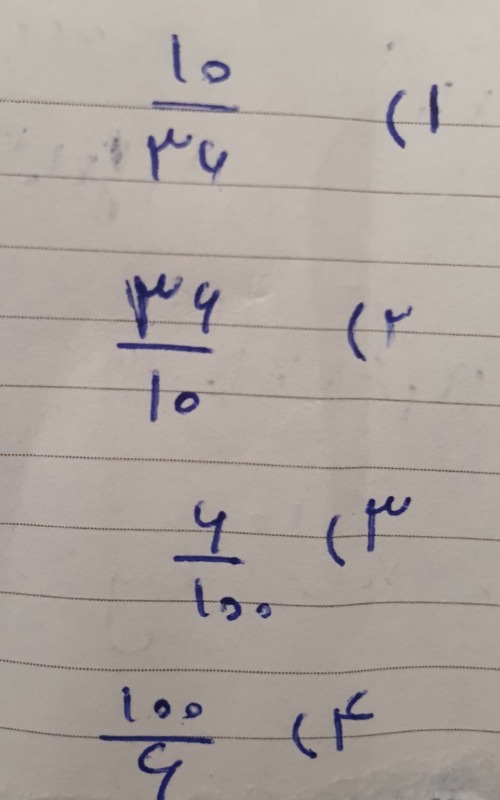 ۱) ۱۰/۳۶
۲) ۳۶/۱۰
۳) ۶/۱۰۰
۴) ۱۰۰/۶